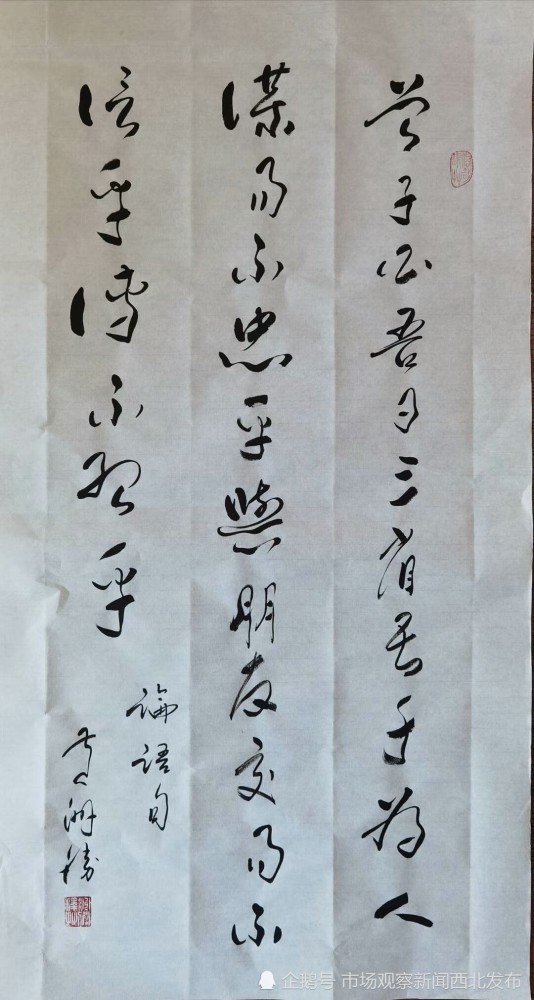 曾子曰吾日三省吾身為人
謀而不忠乎與朋友交而不
信乎傳不習乎
論語句
企鹅号 市场观察新闻西北发布